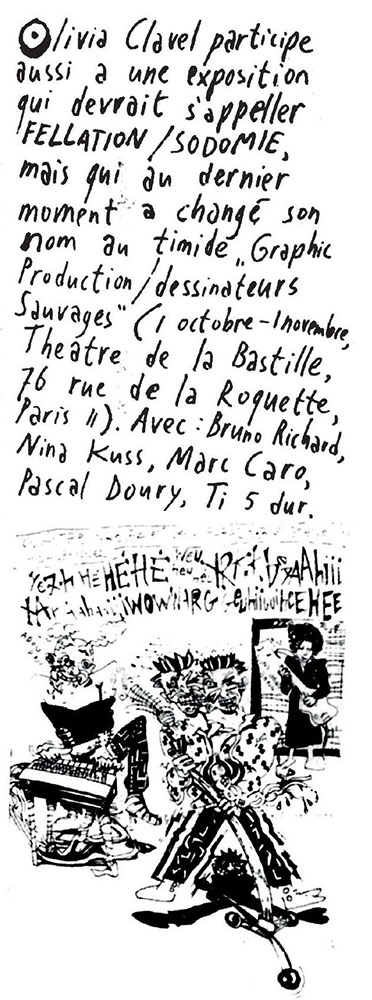 Olivia Clavel participe
aussi a une exposition
qui devrait s'appeller
"FELLATION/SODOMIE,
mais qui au dernier
moment a changé son
nom au timide „Graphic
Production/dessinateurs
Sauvages" (1 octobre-1 novembre,
Théatre de la Bastille,
76 rue de la Roquette,
Paris 11). Avec : Bruno Richard,
Nina Kuss, Marc Caro,
Pascal Doury, Ti 5 dur.
HEHÉHÉ
WOW
HEE